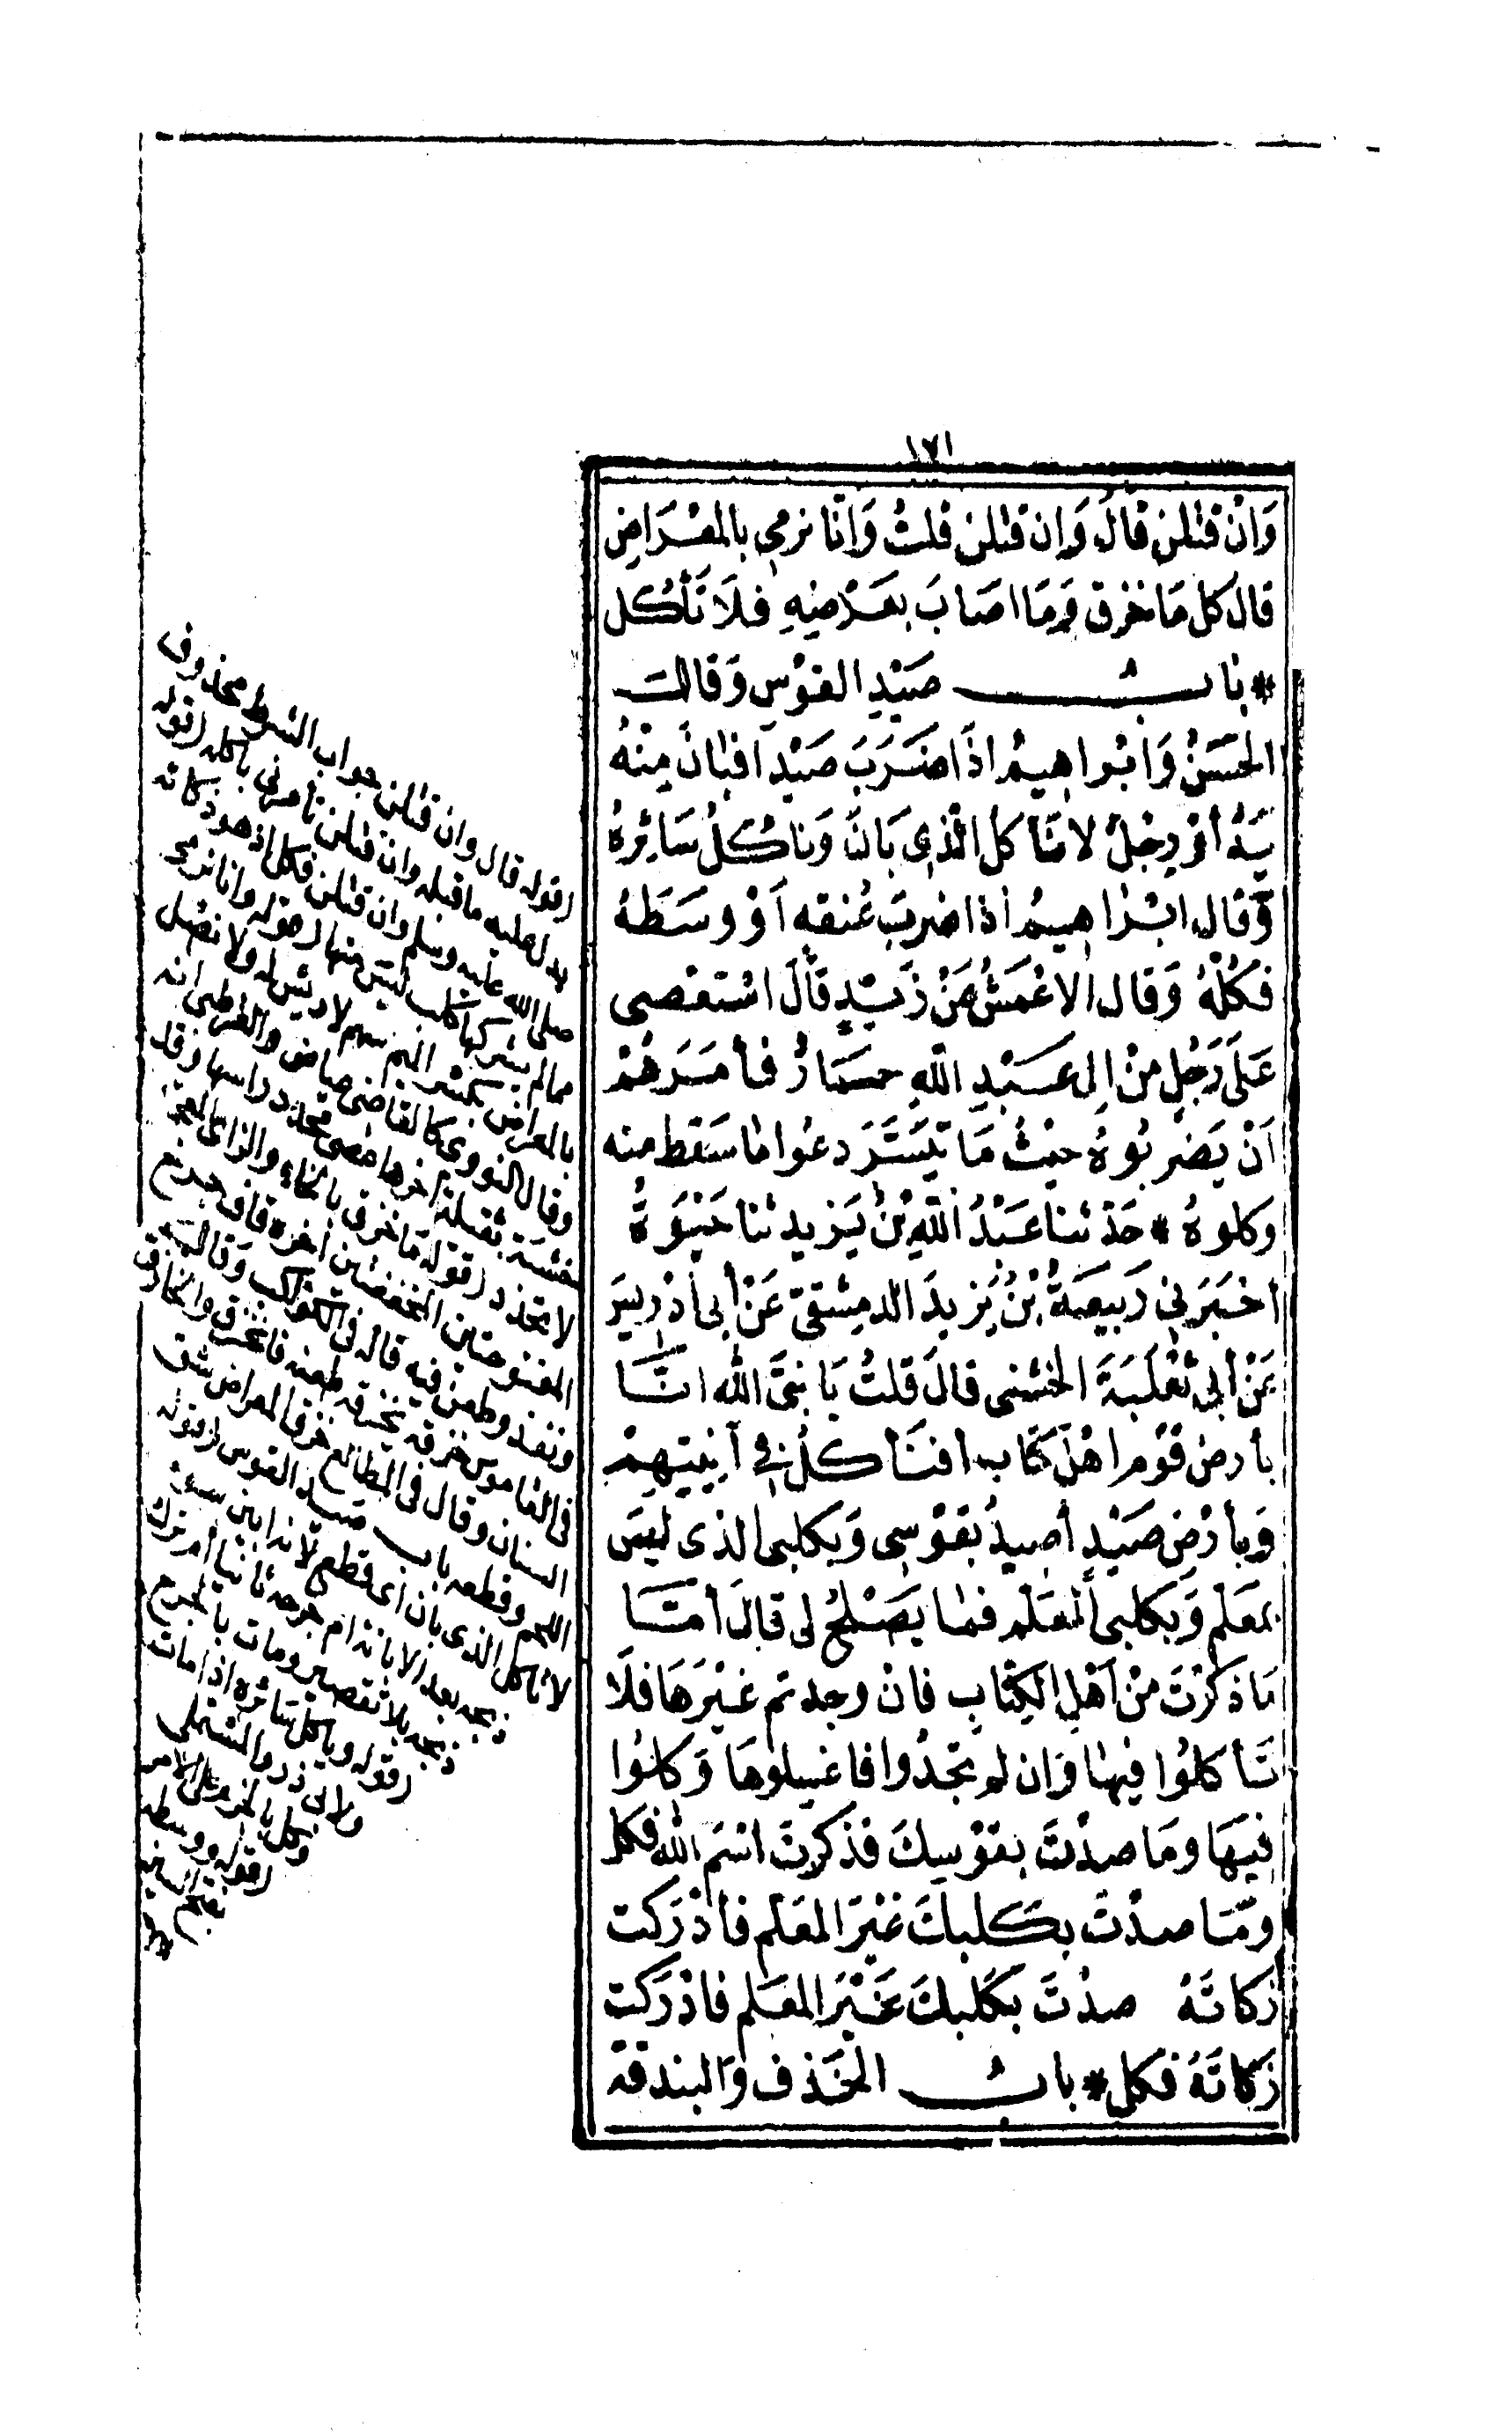 ١٧١
وَاِنْ قتلنَ قَالَ وَاِن قتلن قلتُ وَاِنَّا نرمي بالمعْرَاضِ
قال كل مَا خزق وَمَا اصَابَ بعَرْضِهِ فلَا تَأكُل
* بَابُ صَيْدِ القوْسِ وَقالَ
الحَسَنُ وَابْرَاهِيمُ اذَا ضَرَبَ صَيْدًا فبَانَ مِنْهُ
يَدٌ أوْ رِجْلٌ لا تَأكل الَّذِى بَانَ وَتَاكُلُ سَائِرَهُ
وَقال ابْرَاهِيمُ اذا ضربَ عُنقه اَوْ وسَطَهُ
فكلْهُ وَقال الاعْمَشُ عَنْ زَيْدٍ قالَ اسْتعْصى
عَلَى رَجُلٍ مِنْ الِ عَبْدِ اللهِ حمَارٌ فأمَرَهُمْ
اَنْ يَضربُوهُ حيْثُ مَا تَيَسَّرَ دعُوا ما سَقط منه
وكلوهُ * حَدثنا عَبْدُ اللهِ بْنُ يَزيد ثنا حَيْوَةُ
أخبَرَنِي رَبِيعَةُ بْنُ يَزيدَ الدمِشقيّ عَنْ أبى اِدْرِيسَ
عَنْ أبى ثعْلَبَةَ الخشنى قالَ قلتُ يَا نبىَّ الله انَّا
بأرض قوْم اهْل كتاب أفنَأكلُ فى آنِيَتِهِمْ
وَبأرْضِ صَيْدٍ أصِيدُ بقوْسِى وَبكلبى الذى ليسَ
بمعَلمٍ وَبكلبى المعَلم فما يَصْلحُ لى قالَ أمَّا
مَا ذكرْتَ مِنْ أهْلِ الكِتَابِ فان وجدتم غيْرَهَا فلَا
تَأكلُوا فِيهَا وَان لم تجدُوا فاغسِلوهَا وَكلُوا
فِيهَا ومَا صدْتَ بقوْسِكَ فذكرتَ اسْمَ الله فكل
ومَا صدْتَ بكلبكَ غيْرَ المعَلم فأدْرَكت
زَكاتَهُ صدْتَ بكلبكَ غيْرَ المعَلم فأدْرَكت
زَكاتَهُ فكل * بابُ الخَذف وَالبندقة
(قوله قال وان قتلن جواب الشرط محذوف
يدل عليه ما قبله وان قتلن تأمرنى بأكله (قوله
صلى الله عليه وسلم وان قتلن فكل اذ هو ذكاته
مالم يشركها كلب ليس منها (قوله وانا نرمى
بالمعراض بكسر الميم سهم لا ريش له ولا نصل
وقال النووى كالقاضى عياض والقرطبى انه
خشبة ثقيلة آخرها عصى محدد راسها وقد
لا تحدد (قوله ما خزق بالخاء والزاى المعجم
المفتوحتين المخففتين اخره قاف جرح
ونفذ وطعن فيه قاله فى الكواكب وقال
فى القاموس خزقه يخزقه طعنه فانخزق والخازق
السنان وقال فى المطالع خزق المعراض شق
اللحم وقطعه باب صيد القوس (قوله
لا تأكل الذى بان اى قطع لانه ابين من حى
ذبحه بعد الابانة ام جرحه ثانيا ام ترك
ذبحه بلا تقصير ومات بالجرح
(قوله وياكل سائره اذا مات
ولابى ذر والمستملى
وكل بالجزم على الامر
(قوله ووسطه
بفتح السين